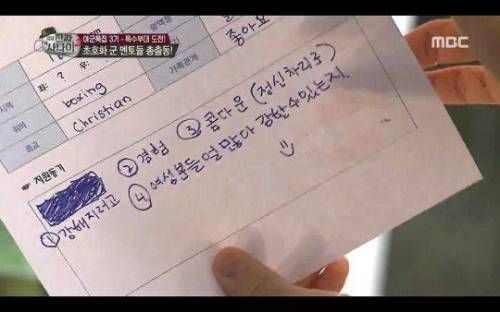 사나이
여군특집 3기 - 특수부대 도전!
초호화 군 멘토들 총출동!
MBC
좋아요
가족관계
취미 boxing
종교 Christian
지원동기
① 강해지려고 ② 경험 ③ 콤다운 (정신차리고)
④ 여성분들 얼많아 강한수있는지